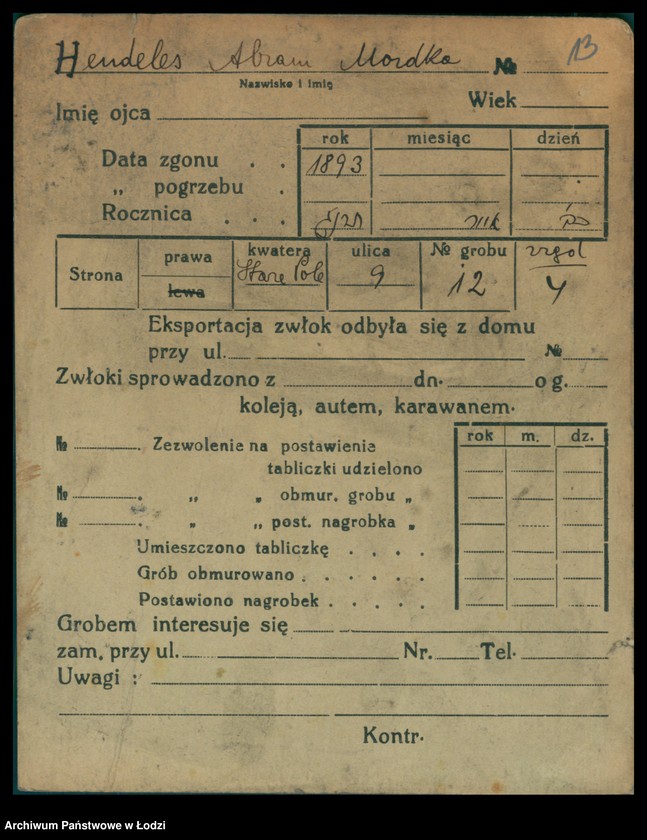 Hendeles Abram Mordka № 13
Nazwisko i imię
Wiek
Imię ojca
rok miesiąc dzień
Data zgonu . . 1893
„ pogrzebu .
Rocznica . . . אייר
Strona prawa lewa kwatera Stare Pole ulica 9 № grobu 12 4
Eksportacja zwłok odbyła się z domu
przy ul. №
Zwłoki sprowadzono z dn. o g.
koleją, autem, karawanem.
rok m. dz.
№ . Zezwolenie na postawienie
tabliczki udzielono
№ . „ „ obmur. grobu „
№ . „ „ post. nagrobka „
Umieszczono tabliczkę . . . .
Grób obmurowano . . . . .
Postawiono nagrobek . . . . .
Grobem interesuje się
zam. przy ul. Nr. Tel.
Uwagi :
Kontr.
Archiwum Państwowe w Łodzi